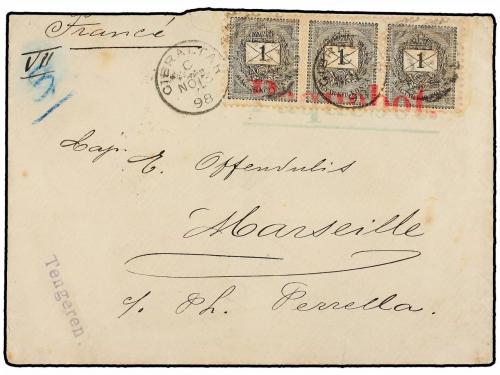 Francé
VII
GIBRALTAR
C
NO
98
1 1 1
Cap. E. Offendulis
Marseille
c/o Ph. Perrella.
Tengeren.